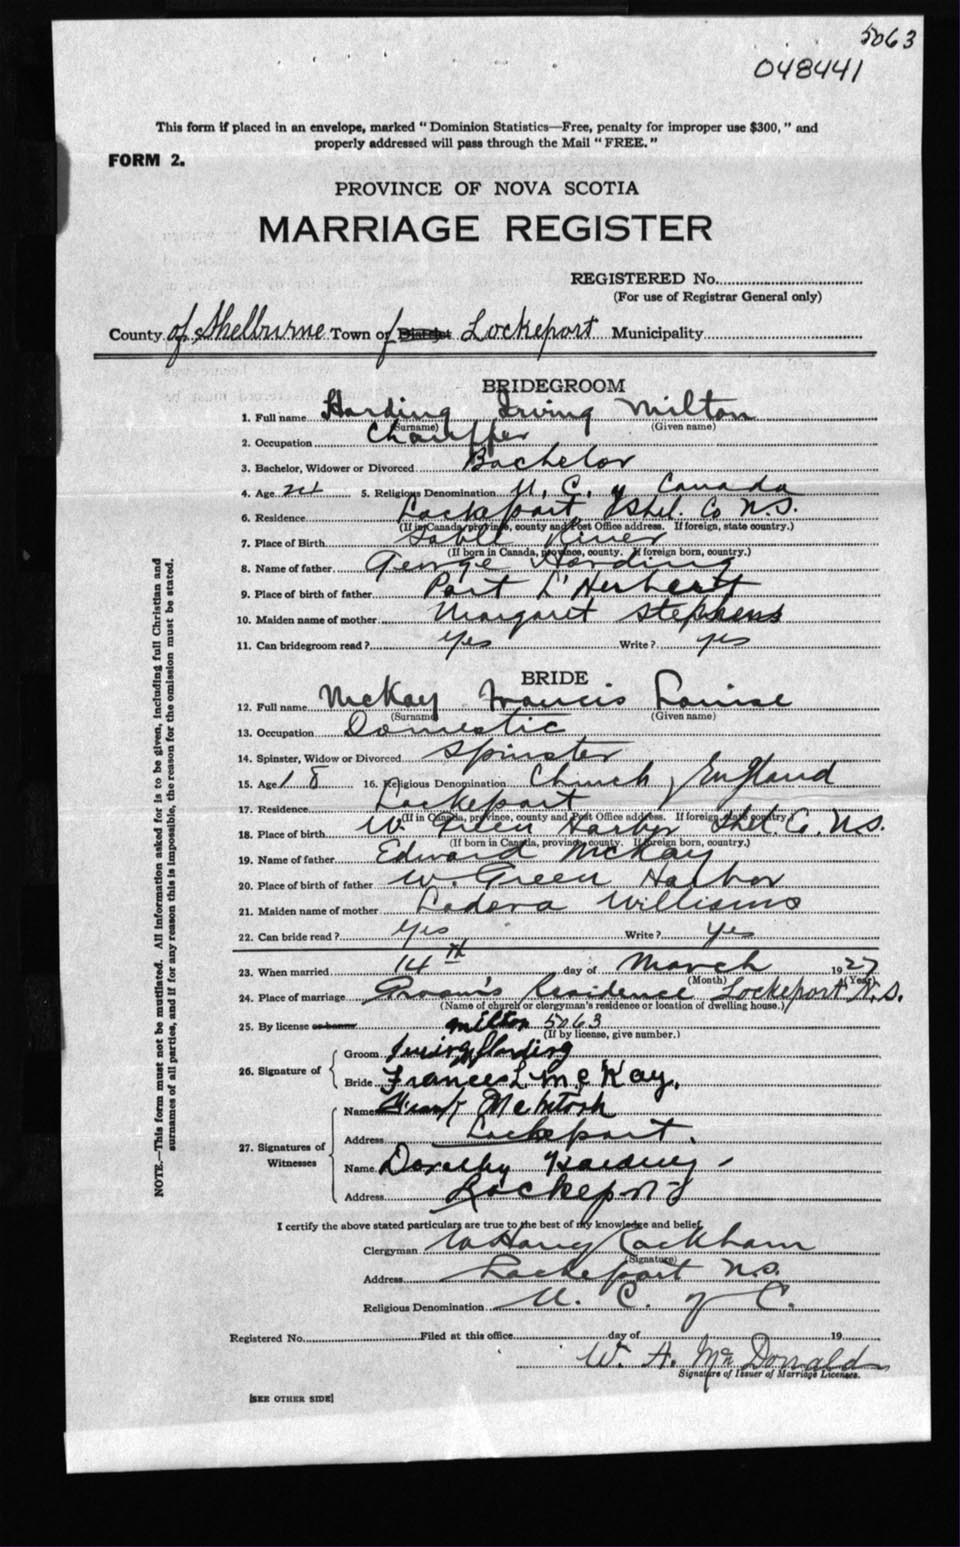 5063
048441
This form if placed in an envelope, marked "Dominion Statistics—Free, penalty for improper use $300," and
properly addressed will pass through the Mail "FREE."
FORM 2.
PROVINCE OF NOVA SCOTIA
MARRIAGE REGISTER
REGISTERED No.
(For use of Registrar General only)
County of Shelburne Town of District Lockeport Municipality
BRIDEGROOM
1. Full name Harding Irving Milton
(Surname) (Given name)
2. Occupation Chauffer
3. Bachelor, Widower or Divorced Bachelor
4. Age 5. Religious Denomination U. C. of Canada
6. Residence Lockeport Shel. Co N.S.
(If in Canada, province, county and Post Office address. If foreign, state country.)
7. Place of Birth Sable River
(If born in Canada, province, county. If foreign born, country.)
8. Name of father George Harding
9. Place of birth of father Port L'Herbertt
10. Maiden name of mother Margaret Stephens
11. Can bridegroom read? Yes Write? yes
BRIDE
12. Full name McKay Francis Louise
(Surname) (Given name)
13. Occupation Domestic
14. Spinster, Widow or Divorced Spinster
15. Age 18 16. Religious Denomination Church of England
17. Residence Lockeport
(If in Canada, province, county and Post Office address. If foreign, state country.)
18. Place of birth W. Green Harbor Shel. Co. N.S.
(If born in Canada, province, county. If foreign born, country.)
19. Name of father Edward McKay
20. Place of birth of father W. Green Harbor
21. Maiden name of mother Ladora Williams
22. Can bride read? Yes Write? Yes
23. When married 14th day of March 1927
(Month) (Year)
24. Place of marriage Groom's Residence Lockeport N.S.
(Name of church or clergyman's residence or location of dwelling house.)
25. By license or banns 5063
(If by license, give number.)
26. Signature of
Groom Irving Milton Harding
Bride Frances L. McKay.
27. Signatures of Witnesses
Name McIntosh
Address Lockeport.
Name Dorothy Harding
Address Lockeport
I certify the above stated particulars are true to the best of my knowledge and belief.
Clergyman W Harry Cockham
(Signature)
Address Lockeport N.S.
Religious Denomination U. C. of C.
Registered No. Filed at this office day of 19
W. A. McDonald
Signature of Issuer of Marriage Licenses.
[SEE OTHER SIDE]
NOTE.—This form must not be mutilated. All information asked for is to be given, including full Christian and
surnames of all parties, and if for any reason this is impossible, the reason for the omission must be stated.